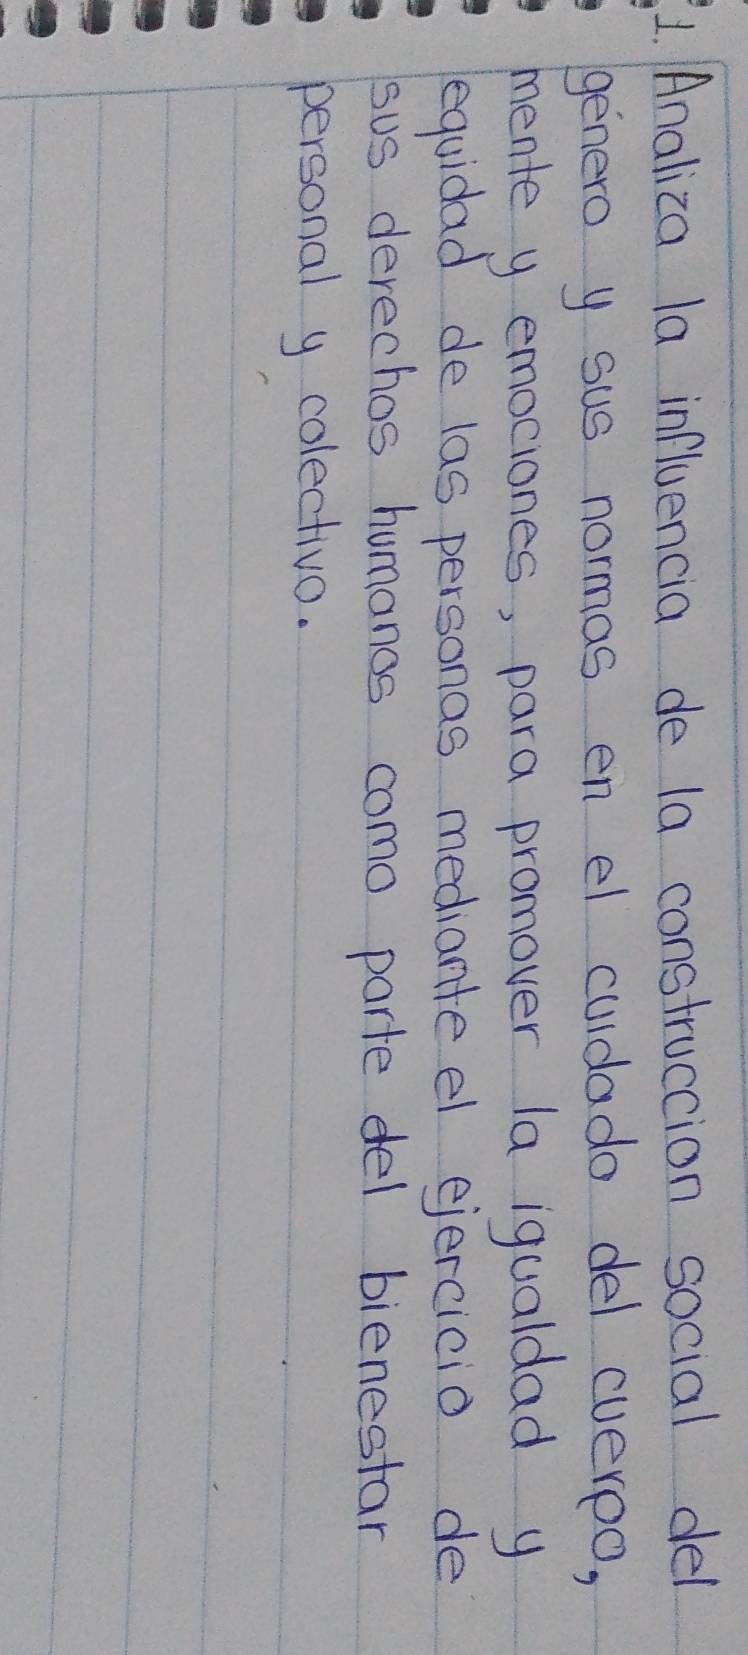 1. Analiza la influencia de la construccion social del
género y sus normas en el cuidado del cuerpo,
mente y emociones, para promover la igualdad y
equidad de las personas mediante el ejercicio de
sus derechos humanos como parte del bienestar
personal y colectivo.